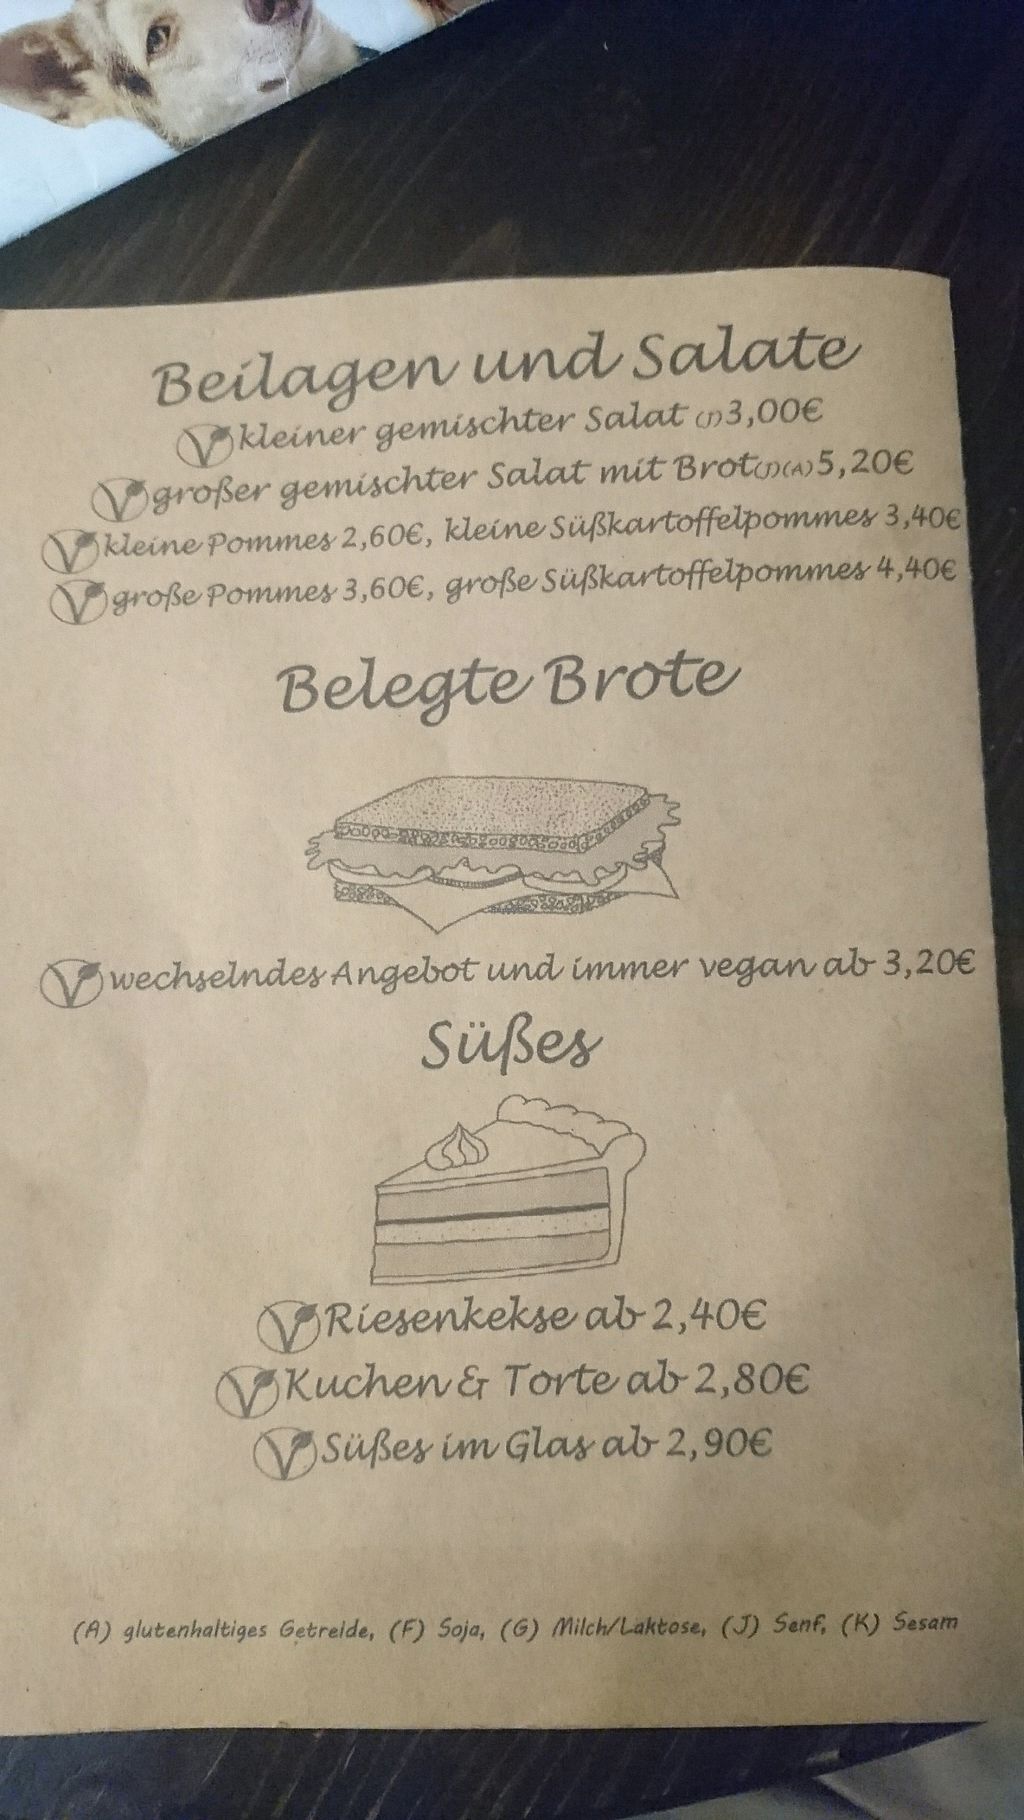 Beilagen und Salate
kleiner gemischter Salat (J) 3,00€
großer gemischter Salat mit Brot (J)(A) 5,20€
kleine Pommes 2,60€, kleine Süßkartoffelpommes 3,40€
große Pommes 3,60€, große Süßkartoffelpommes 4,40€
Belegte Brote
wechselndes Angebot und immer vegan ab 3,20€
Süßes
Riesenkekse ab 2,40€
Kuchen & Torte ab 2,80€
Süßes im Glas ab 2,90€
(A) glutenhaltiges Getreide, (F) Soja, (G) Milch/Laktose, (J) Senf, (K) Sesam